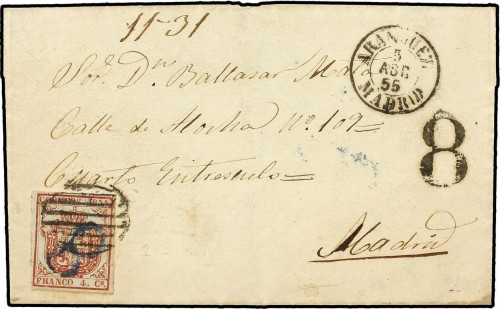 11-31
ARANJUEZ
5
ABR
55
MADRID
Sor. Dn. Baltasar Ma
Calle de Atocha No. 109
8
Cuarto Entresuelo
Madrid
FRANCO 4. CS.